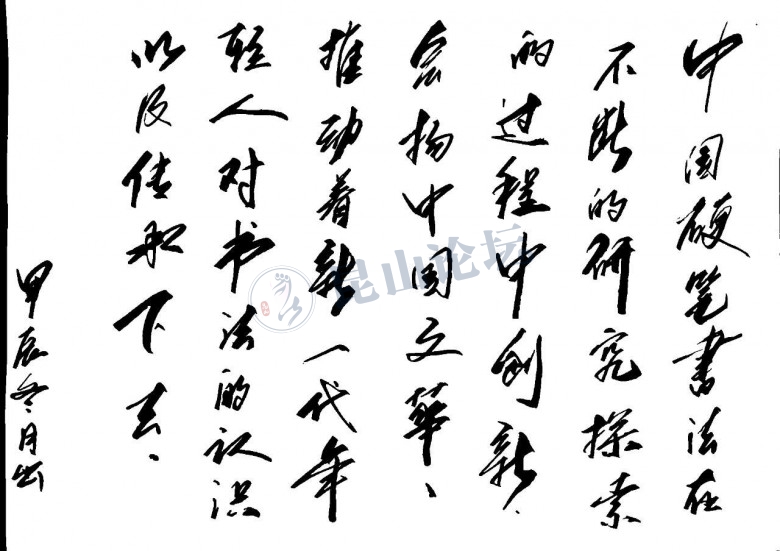 中国硬笔书法在
不断的研究探索
的过程中创新,
会扬中国文华、
推动着新一代年
轻人对书法的认识
以及传承下去、
甲辰冬月出
昆山论坛